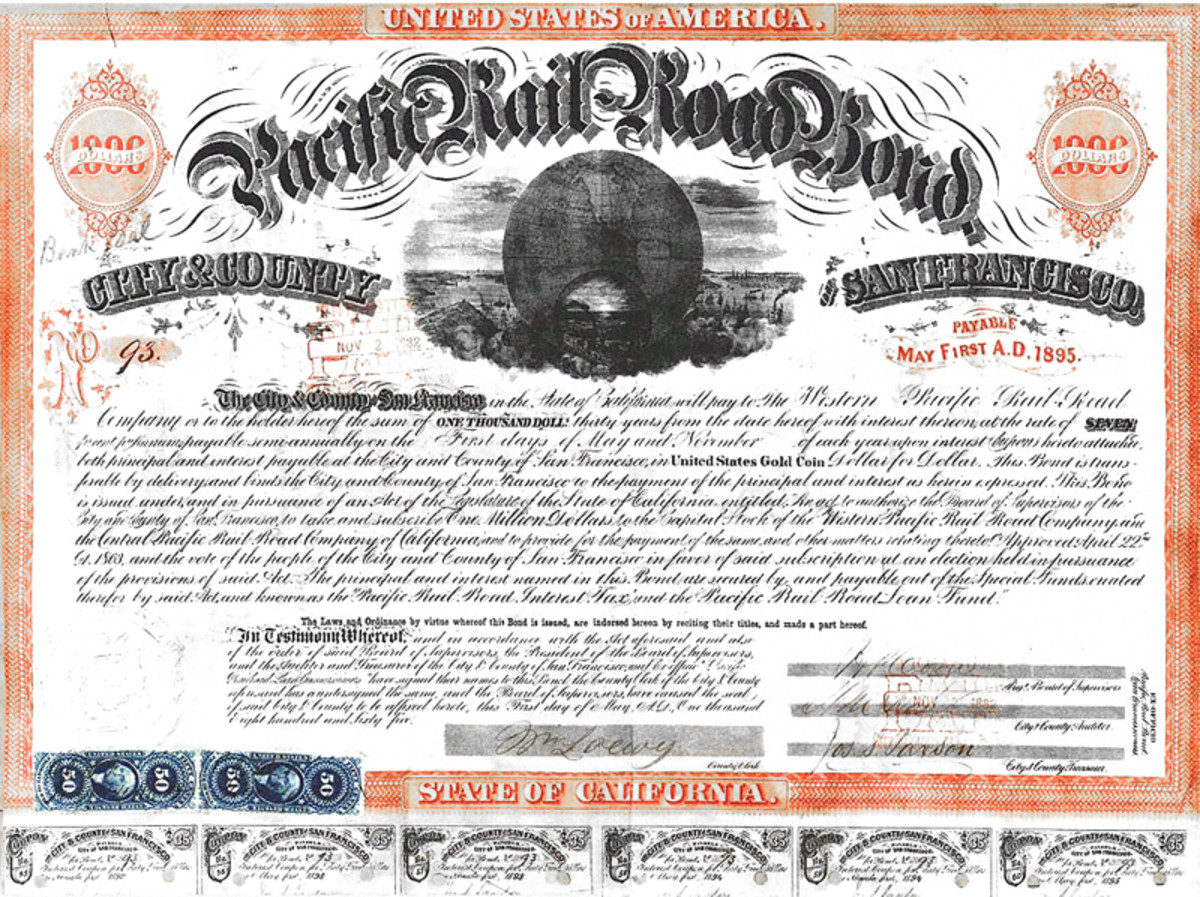 UNITED STATES OF AMERICA.
Pacific Rail Road Bond,
1000
DOLLARS
1000
DOLLARS
CITY & COUNTY
OF SAN FRANCISCO.
No 93.
NOV 2 1882
PAYABLE
MAY FIRST A.D. 1895.
The City & County of San Francisco in the State of California, will pay to The Western Pacific Rail Road
Company or to the holder hereof the sum of ONE THOUSAND DOLLS thirty years from the date hereof with interest thereon, at the rate of SEVEN
per cent per annum, payable semi-annually on the First days of May and November of each year upon interest Coupons hereto attached,
both principal and interest payable at the City and County of San Francisco, in United States Gold Coin Dollar for Dollar. This Bond is trans-
ferable by delivery, and binds the City and County of San Francisco to the payment of the principal and interest as herein expressed. This Bond
is issued under, and in pursuance of an Act of the Legislature of the State of California, entitled, An act to authorize the Board of Supervisors of the
City and County of San Francisco, to take and subscribe One Million Dollars to the Capital Stock of the Western Pacific Rail Road Company, and
the Central Pacific Rail Road Company of California, and to provide for the payment of the same, and other matters relating thereto. Approved April 22nd
1863, and the vote of the people of the City and County of San Francisco in favor of said subscription at an election held in pursuance
of the provisions of said Act. The principal and interest named in this Bond are secured by, and payable out of the Special Funds, created
therefor by said Act, and known as the "Pacific Rail Road Interest Tax" and the Pacific Rail Road Loan Fund."
The Laws and Ordinance by virtue whereof this Bond is issued, are indorsed hereon by reciting their titles, and made a part hereof.
In Testimony Whereof, and in accordance with the Act aforesaid, and also
of the order of said Board of Supervisors, the President of the Board of Supervisors,
and the Auditor and Treasurer of the City & County of San Francisco, and
have signed their names to this Bond, the County Clerk of the City & County
aforesaid has countersigned the same, and the Board of Supervisors, have caused the seal,
of said City & County to be affixed hereto, this First day of May, A.D. One thousand
Eight hundred and Sixty five.
Prest. Board of Supervisors
NOV 2 1882
City & County Auditor.
City & County Treasurer.
EX-OFFICIO
Wm Loewy
County Clerk
50 50
50 50
STATE OF CALIFORNIA.
COUPON CITY & COUNTY SAN FRANCISCO. 35
COUPON CITY & COUNTY SAN FRANCISCO. 35
COUPON CITY & COUNTY SAN FRANCISCO. 35
COUPON CITY & COUNTY SAN FRANCISCO. 35
COUPON CITY & COUNTY SAN FRANCISCO. 35
COUPON CITY & COUNTY SAN FRANCISCO. 35